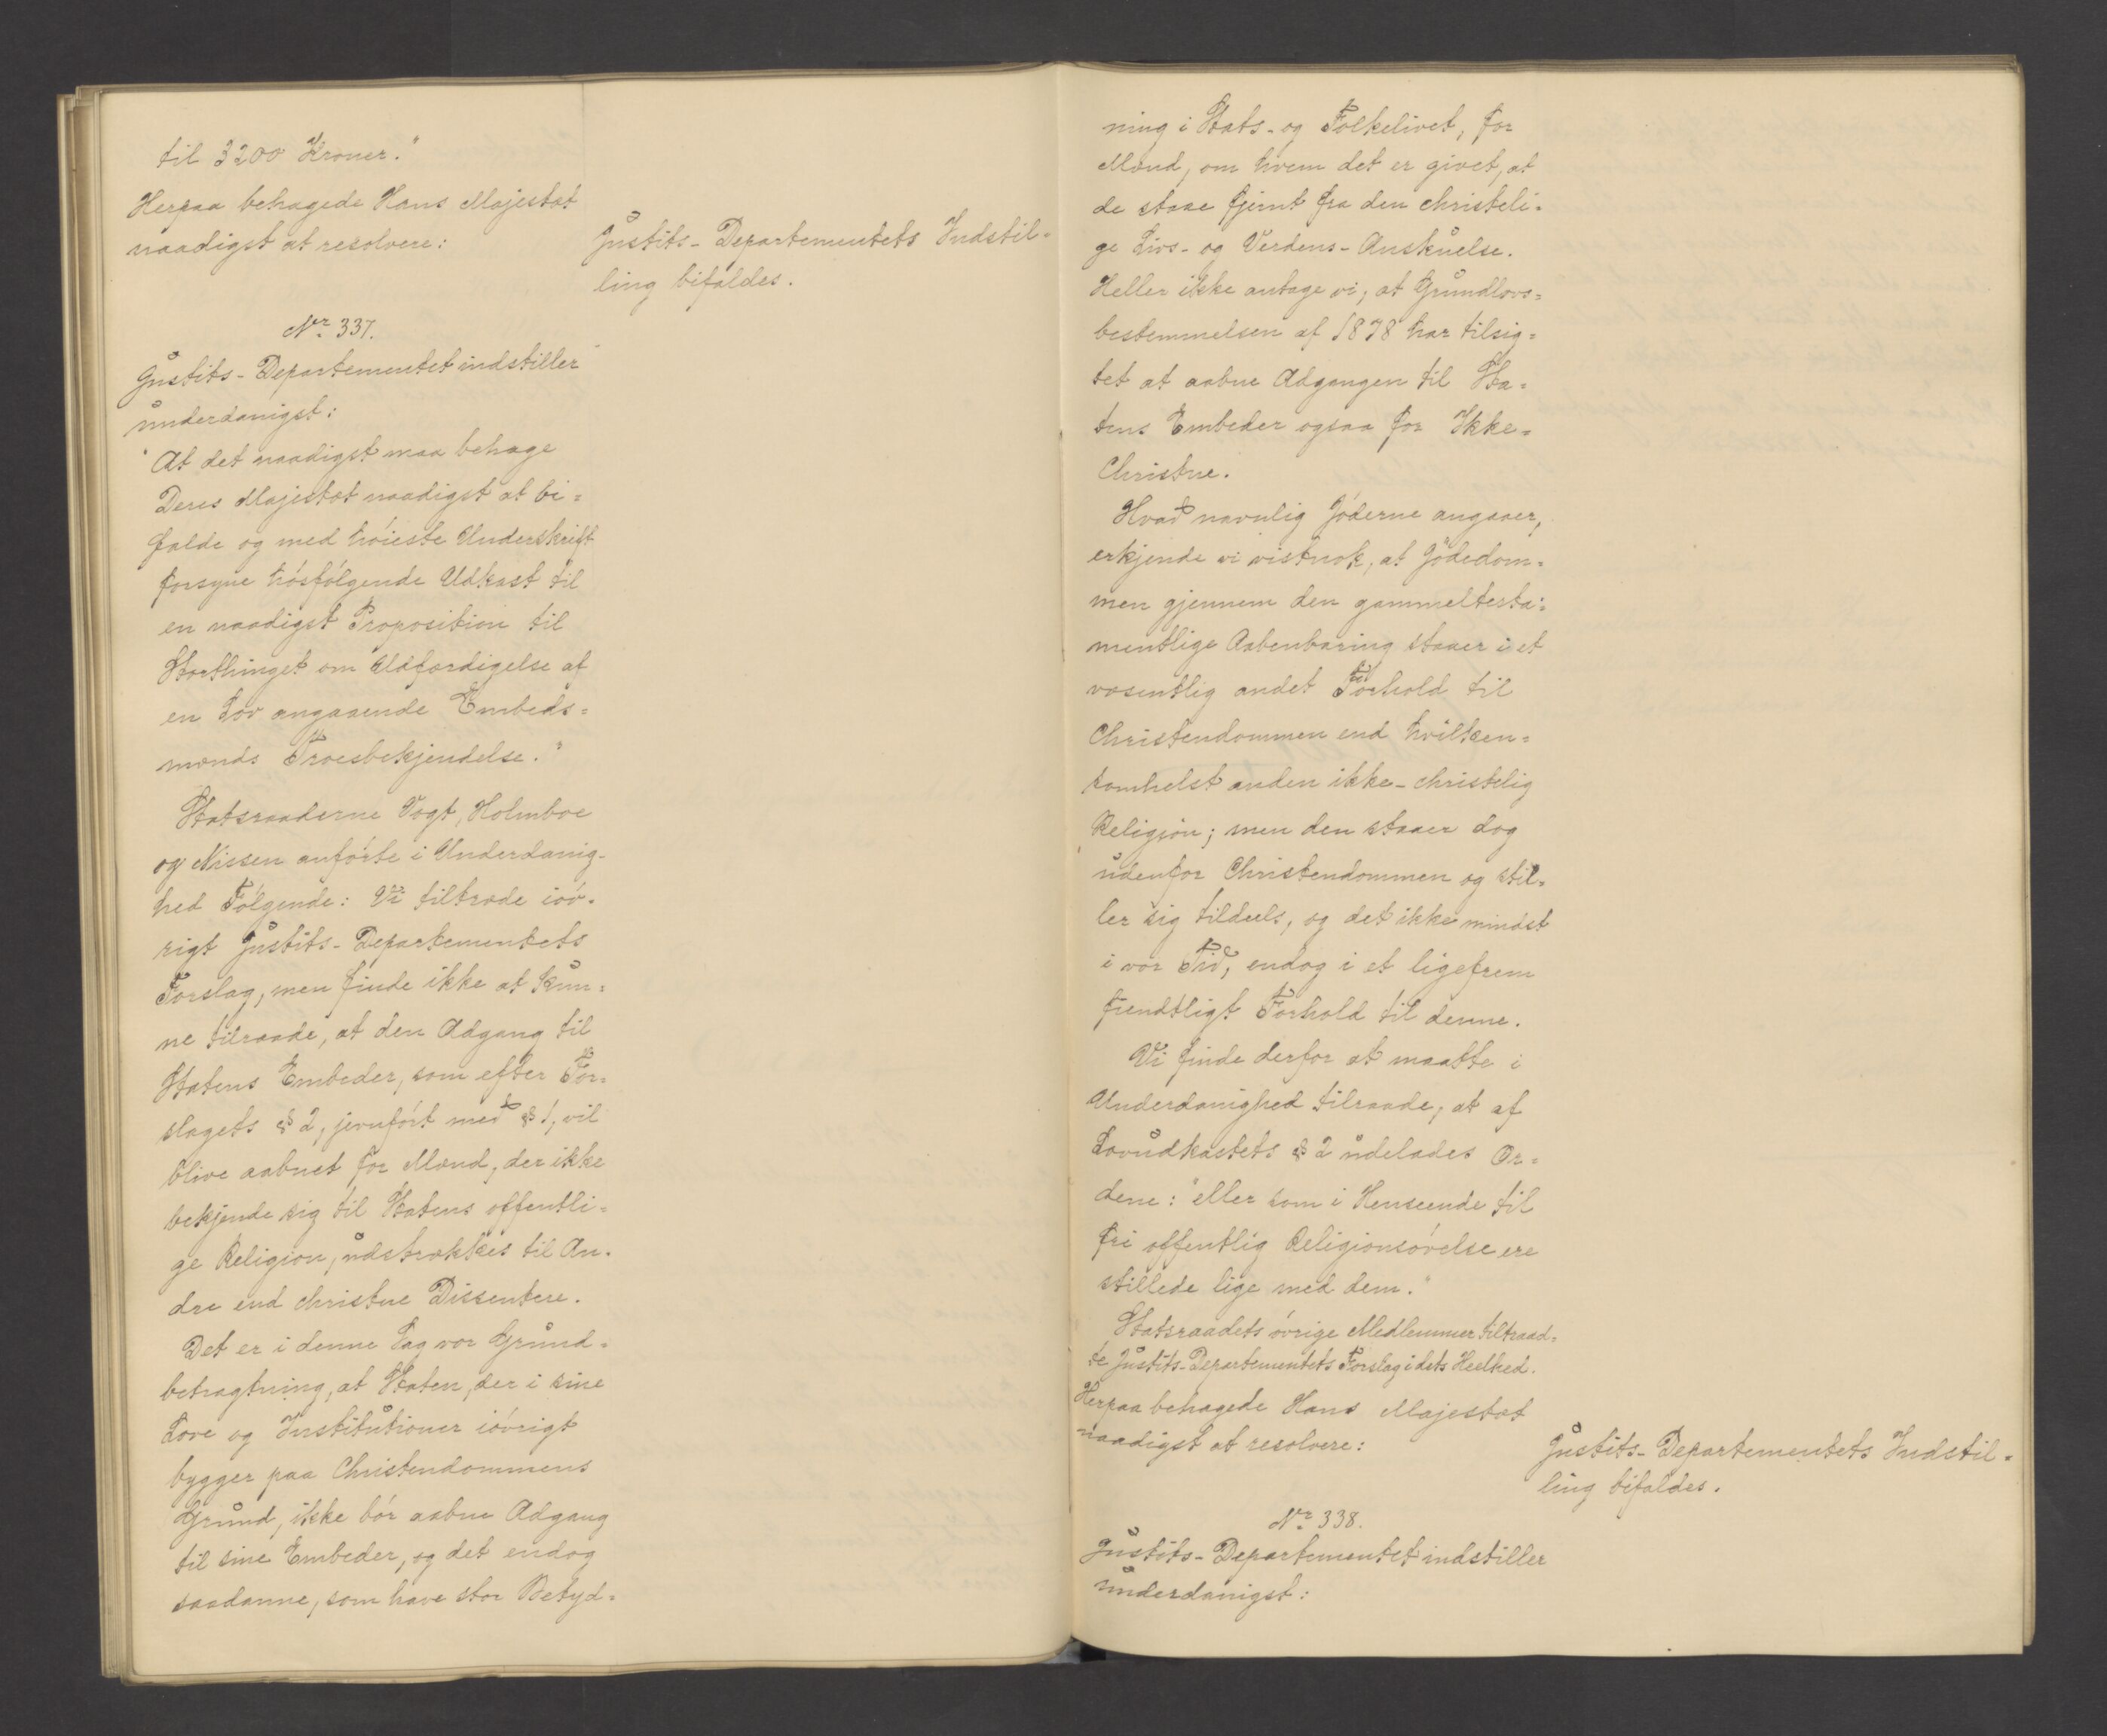 til 3200 Kroner."
Herpaa behagede Hans Majestæt
naadigst at resolvere:
Justits-Departementets Indstil-
ling bifaldes.
No. 337.
Justits-Departementet indstiller
underdanigst:
"At det naadigst maa behage
Deres Majestæt naadigst at bi-
falde og med høieste Underskrift
forsyne hosfølgende Udkast til
en naadigst Proposition til
Storthinget om Udfærdigelse af
en Lov angaaende Embeds-
mænds Troesbekjendelse."
Statsraaderne Vogt, Holmboe
og Nissen anførte i Underdanig-
hed Følgende: Vi tiltræde iøv-
rigt Justits-Departementets
Forslag, men finde ikke at kun-
ne tilraade, at den Adgang til
Statens Embeder, som efter For-
slagets § 2, jevnført med § 1, vil
blive aabnet for Mænd, der ikke
bekjende sig til Statens offentli-
ge Religion, udstrækkes til An-
dre end christne Dissentere.
Det er i denne Sag vor Grund-
betragtning, at Staten, der i sine
Love og Institutioner iøvrigt
bygger paa Christendommens
Grund, ikke bør aabne Adgang
til sine Embeder, og det endog
saadanne, som have stor Betyd-
ning i Stats- og Folkelivet, for
Mænd, om hvem det er givet, at
de staae fjernt fra den christeli-
ge Livs- og Verdens-Anskuelse.
Heller ikke antage vi, at Grundlovs-
bestemmelsen af 1878 har tilsig-
tet at aabne Adgangen til Sta-
tens Embeder ogsaa for Ikke-
Christne.
Hvad navnlig Jøderne angaaer,
erkjende vi vistnok, at Jødedom-
men gjennem den gammeltesta-
mentlige Aabenbaring staaer i et
væsentlig andet Forhold til
Christendommen end hvilken-
somhelst anden ikke-christelig
Religion; men den staaer dog
udenfor Christendommen og stil-
ler sig tildeels, og det ikke mindst
i vor Tid, endog i et ligefrem
fiendtligt Forhold til denne.
Vi finde derfor at maatte i
Underdanighed tilraade, at af
Lovudkastets § 2 udelades Or-
dene: "eller som i Henseende til
fri offentlig Religionsøvelse ere
stillede lige med dem."
Statsraadets øvrige Medlemmer tiltraad-
te Justits-Departementets Forslag i dets Heelhed.
Herpaa behagede Hans Majestæt
naadigst at resolvere:
Justits-Departementets Indstil-
ling bifaldes.
No. 338.
Justits-Departementet indstiller
underdanigst: